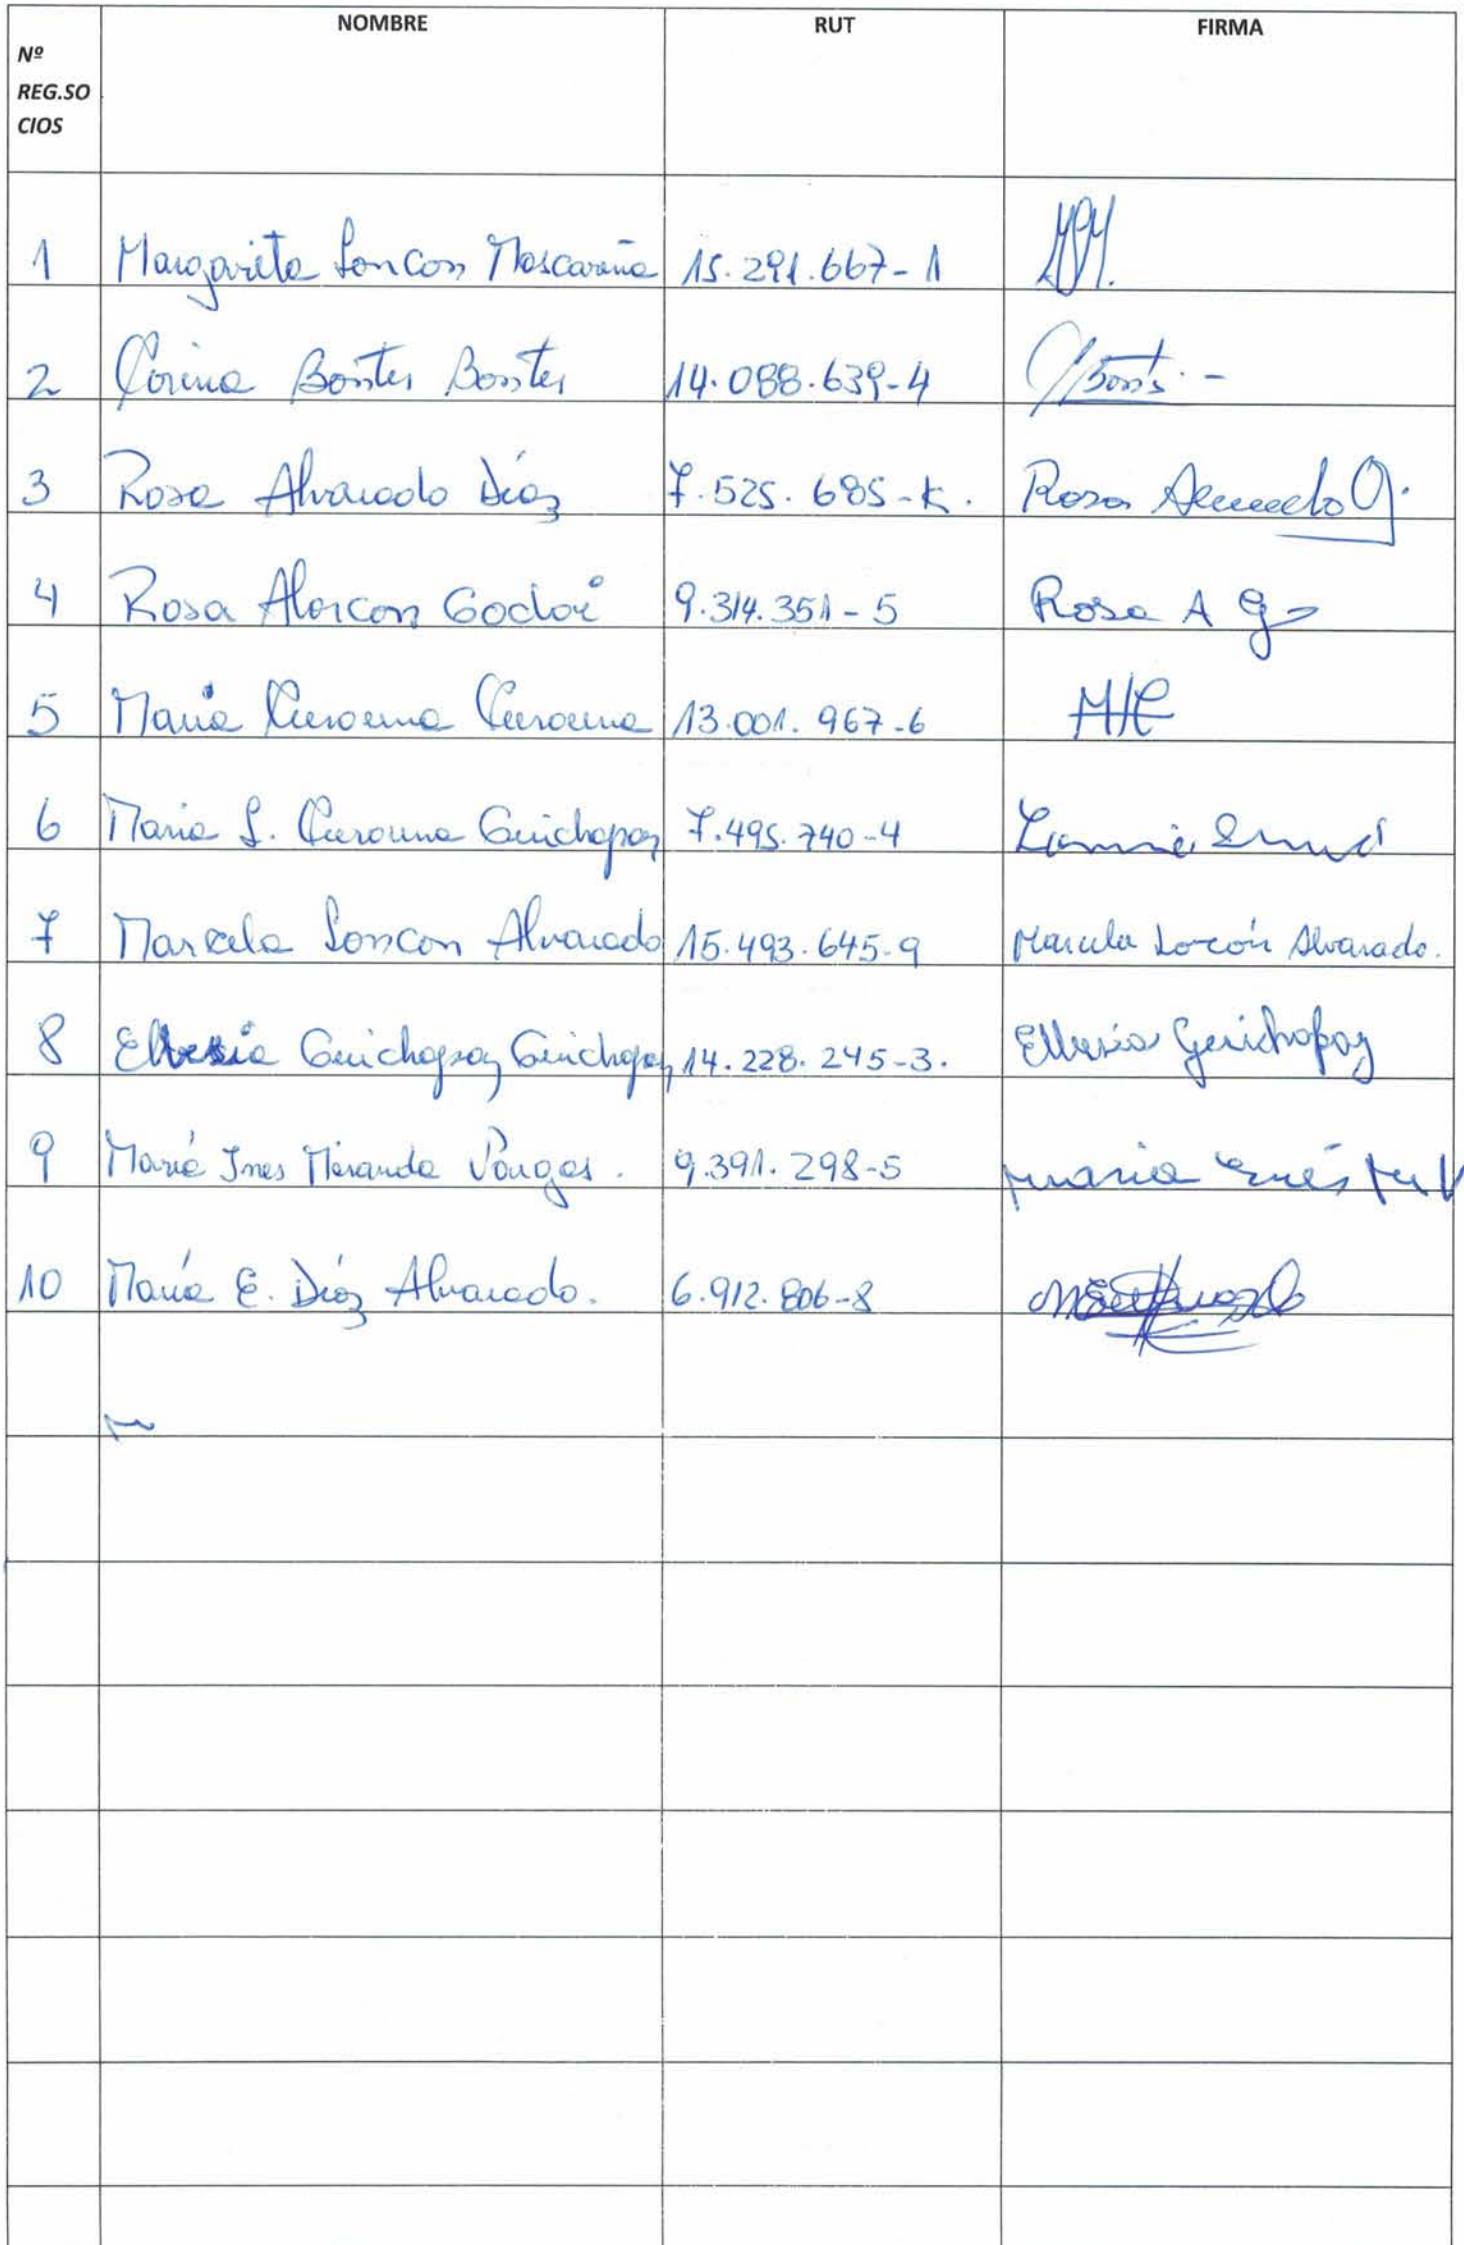 NOMBRE RUT FIRMA
Nº
REG.SO
CIOS
1 Margarita Loncon Mascareña 15.291.667-1
2 Corina Bontes Bontes 14.088.639-4
3 Rosa Alvarado Díaz 7.525.685-K. Rosa
4 Rosa Alarcon Godoi 9.314.351-5 Rosa A G
5 Maria 13.001.967-6
6 Maria L. Guichapay 7.495.740-4
7 Marcela Loncon Alvarado 15.493.645-9 Marcela Locón Alvarado.
8 Ellesia Guichapay Guichapay 14.228.245-3. Ellesia Guichapay
9 María Ines Miranda Vargas. 9.391.298-5 maria Inés
10 María E. Díaz Alvarado. 6.912.806-8